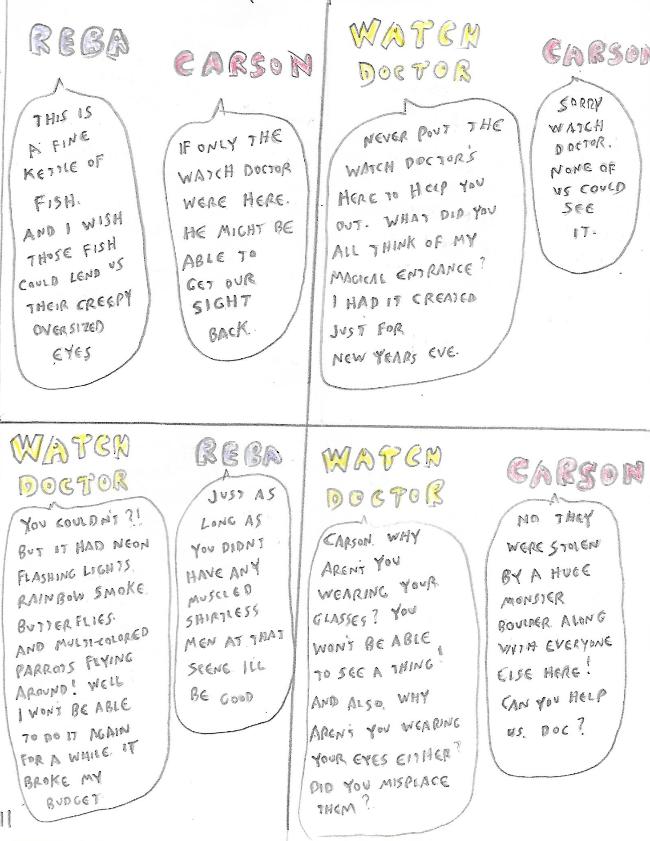 REBA
THIS IS
A FINE
KETTLE OF
FISH.
AND I WISH
THOSE FISH
COULD LEND US
THEIR CREEPY
OVERSIZED
EYES
CARSON
IF ONLY THE
WATCH DOCTOR
WERE HERE.
HE MIGHT BE
ABLE TO
GET OUR
SIGHT
BACK.
WATCH
DOCTOR
NEVER POUT THE
WATCH DOCTOR'S
HERE TO HELP YOU
OUT. WHAT DID YOU
ALL THINK OF MY
MAGICAL ENTRANCE?
I HAD IT CREATED
JUST FOR
NEW YEARS EVE.
CARSON
SORRY
WATCH
DOCTOR.
NONE OF
US COULD
SEE
IT.
WATCH
DOCTOR
YOU COULDN'T?!
BUT IT HAD NEON
FLASHING LIGHTS.
RAINBOW SMOKE.
BUTTERFLIES.
AND MULTI-COLORED
PARROTS FLYING
AROUND! WELL
I WON'T BE ABLE
TO DO IT AGAIN
FOR A WHILE. IT
BROKE MY
BUDGET
REBA
JUST AS
LONG AS
YOU DIDN'T
HAVE ANY
MUSCLED
SHIRTLESS
MEN AT THAT
SCENE I'LL
BE GOOD
WATCH
DOCTOR
CARSON. WHY
AREN'T YOU
WEARING YOUR
GLASSES? YOU
WON'T BE ABLE
TO SEE A THING!
AND ALSO, WHY
AREN'T YOU WEARING
YOUR EYES EITHER?
DID YOU MISPLACE
THEM?
CARSON
NO THEY
WERE STOLEN
BY A HUGE
MONSTER
BOULDER ALONG
WITH EVERYONE
ELSE HERE!
CAN YOU HELP
US, DOC?
11